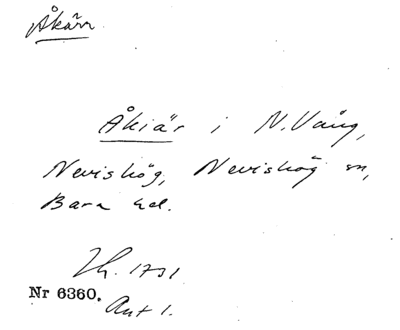 Åkärr
Åkiär i N. Vång,
Nevishög, Nevishög sn,
Bara hd.
Lh. 1731
Nr 6360. Avt 1.